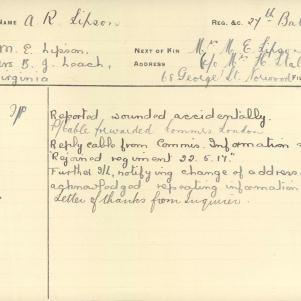 NAME A R Lipson REG. &C. 27th Bat
M. E. Lipson. NEXT OF KIN Mrs M. E. Lipson
B. J. Leach, ADDRESS c/o Mrs H.
Virginia 68 George St. Norwood
Reported wounded accidentally.
Cable forwarded Commrs London
Reply cable from Commis. Information
Rejoined regiment 22.5.17.
Further I/L, notifying change of address.
acknowledged repeating information
Letter of thanks from Inquirer.